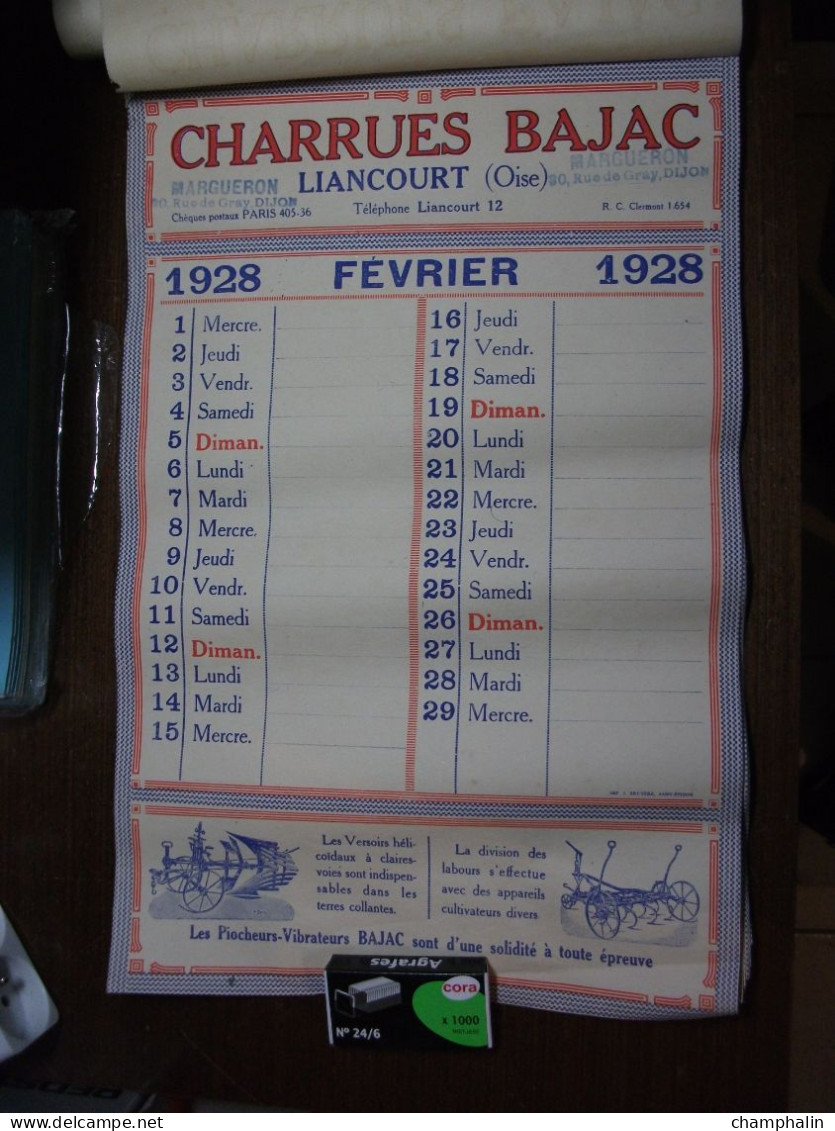 CHARRUES BAJAC
LIANCOURT (Oise)
MARGUERON
90, Rue de Gray, DIJON
MARGUERON
90, Rue de Gray, DIJON
Chèques postaux PARIS 405-36
Téléphone Liancourt 12
R. C. Clermont 1.654
1928 FÉVRIER 1928
1 Mercre.
2 Jeudi
3 Vendr.
4 Samedi
5 Diman.
6 Lundi
7 Mardi
8 Mercre.
9 Jeudi
10 Vendr.
11 Samedi
12 Diman.
13 Lundi
14 Mardi
15 Mercre.
16 Jeudi
17 Vendr.
18 Samedi
19 Diman.
20 Lundi
21 Mardi
22 Mercre.
23 Jeudi
24 Vendr.
25 Samedi
26 Diman.
27 Lundi
28 Mardi
29 Mercre.
Les Versoirs héli-
coïdaux à claires-
voies sont indispen-
sables dans les
terres collantes.
La division des
labours s'effectue
avec des appareils
cultivateurs divers
Les Piocheurs-Vibrateurs BAJAC sont d'une solidité à toute épreuve
Agrafes
cora
x 1000
N° 24/6
champhalin